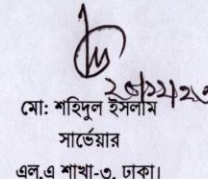 ২৬/১২/২৩
মো: শহিদুল ইসলাম
সার্ভেয়ার
এল.এ শাখা-৩, ঢাকা।